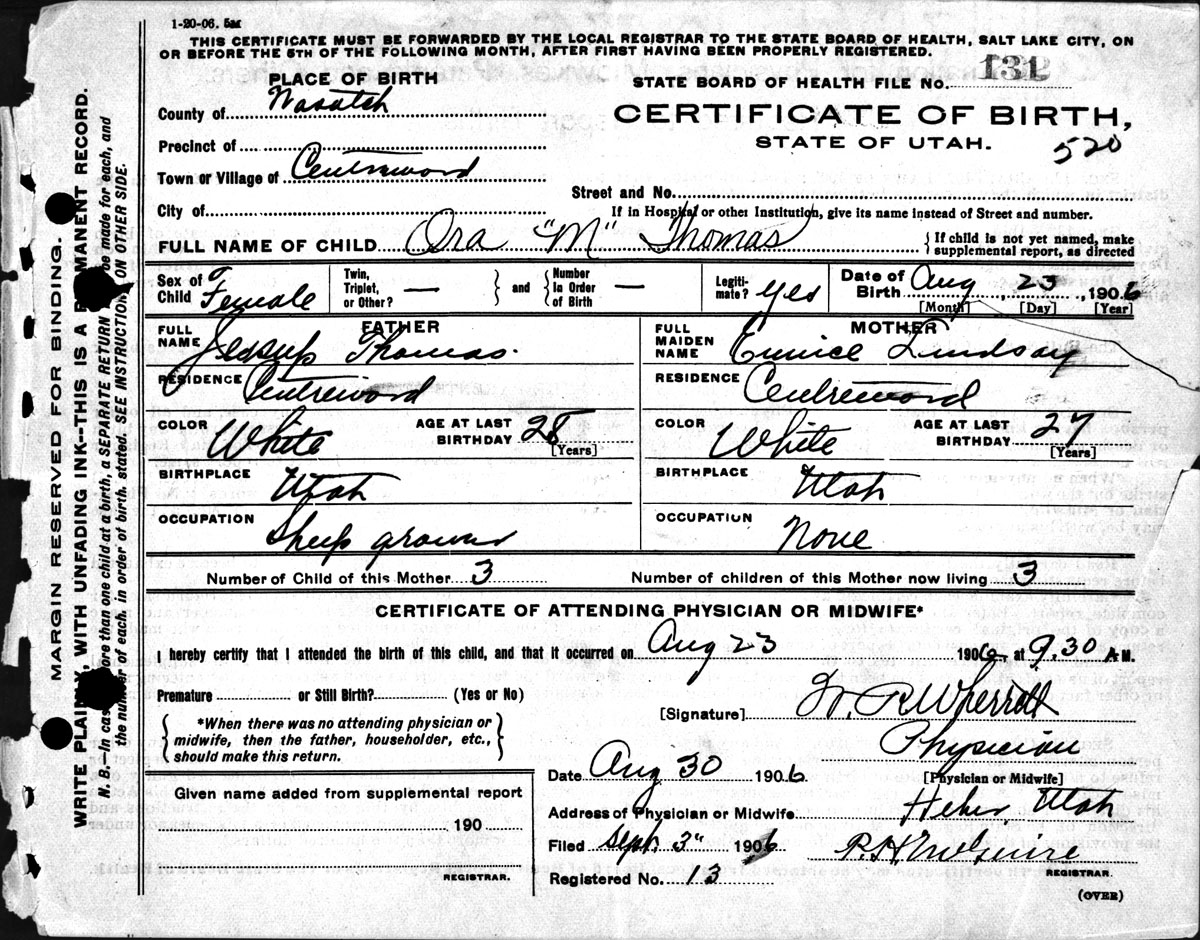 1-20-06. 5m
THIS CERTIFICATE MUST BE FORWARDED BY THE LOCAL REGISTRAR TO THE STATE BOARD OF HEALTH, SALT LAKE CITY, ON
OR BEFORE THE 5TH OF THE FOLLOWING MONTH, AFTER FIRST HAVING BEEN PROPERLY REGISTERED.
PLACE OF BIRTH
County of Wasatch
Precinct of
Town or Village of Centreword
City of
STATE BOARD OF HEALTH FILE No. 131
CERTIFICATE OF BIRTH,
STATE OF UTAH.
520
Street and No.
If in Hospital or other Institution, give its name instead of Street and number.
FULL NAME OF CHILD Ora "M" Thomas
{If child is not yet named, make
supplemental report, as directed
Sex of Child Female
Twin, Triplet, or Other? — } and { Number In Order of Birth —
Legitimate? Yes
Date of Birth Aug 23, 1906
[Month] [Day] [Year]
FATHER
FULL NAME Jessup Thomas.
RESIDENCE Centreword
COLOR White AGE AT LAST BIRTHDAY 28 [Years]
BIRTHPLACE Utah
OCCUPATION Sheep grower
MOTHER
FULL MAIDEN NAME Eunice Lindsay
RESIDENCE Centreword
COLOR White AGE AT LAST BIRTHDAY 27 [Years]
BIRTHPLACE Utah
OCCUPATION None
Number of Child of this Mother 3 Number of children of this Mother now living 3
CERTIFICATE OF ATTENDING PHYSICIAN OR MIDWIFE*
I hereby certify that I attended the birth of this child, and that it occurred on Aug 23 1906, at 9.30 A M.
Premature or Still Birth? (Yes or No)
{*When there was no attending physician or
midwife, then the father, householder, etc.,
should make this return.}
[Signature] W. R Wherritt
Physician
[Physician or Midwife]
Date Aug 30 1906
Address of Physician or Midwife Heber, Utah
Filed Sept. 3" 1906 P. H McGuire
REGISTRAR.
Registered No. 13
(OVER)
Given name added from supplemental report
190
REGISTRAR.
MARGIN RESERVED FOR BINDING.
WRITE PLAINLY, WITH UNFADING INK--THIS IS A PERMANENT RECORD.
N. B.—In case more than one child at a birth, a SEPARATE RETURN be made for each, and
the number of each, in order of birth, stated. SEE INSTRUCTIONS ON OTHER SIDE.